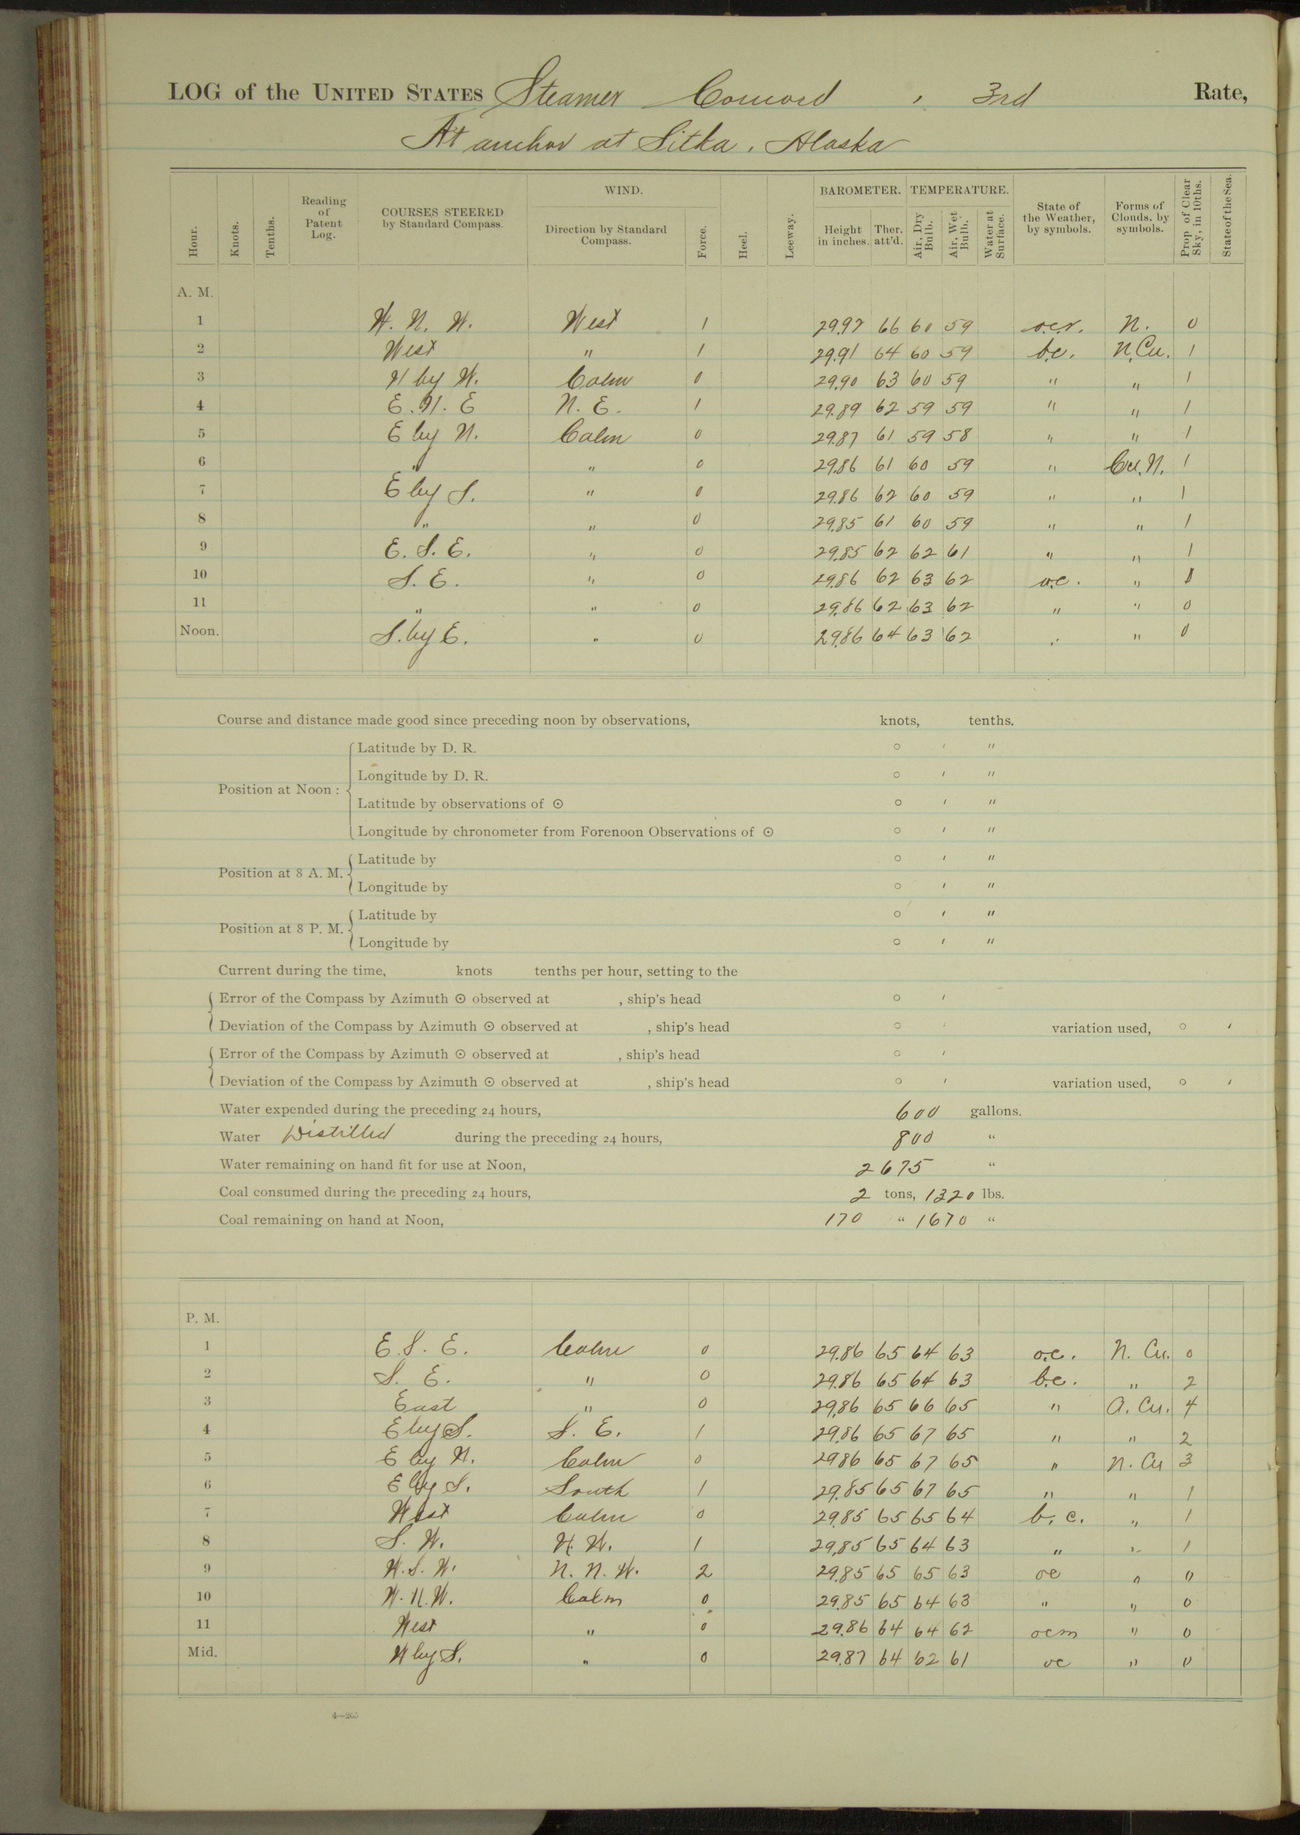 LOG of the UNITED STATES Steamer Concord , 3rd Rate,
At anchor at Sitka, Alaska
Hour. Knots. Tenths. Reading of Patent Log. COURSES STEERED by Standard Compass. WIND. Direction by Standard Compass. Force. Heel. Leeway. BAROMETER. Height in inches. Ther. att'd. TEMPERATURE. Air, Dry Bulb. Air, Wet Bulb. Water at Surface. State of the Weather, by symbols. Forms of Clouds, by symbols. Prop of Clear Sky, in 10ths. State of the Sea.
A. M.
1 W. N. W. West 1 29.92 66 60 59 o.c.r. N. 0
2 West " 1 29.91 64 60 59 b.c. N.Cu. 1
3 N by W. Calm 0 29.90 63 60 59 " " 1
4 E. N. E N. E. 1 29.89 62 59 59 " " 1
5 E by N. Calm 0 29.87 61 59 58 " " 1
6 " " 0 29.86 61 60 59 " Cu.N. 1
7 E by S. " 0 29.86 62 60 59 " " 1
8 " " 0 29.85 61 60 59 " " 1
9 E. S. E. " 0 29.85 62 62 61 " " 1
10 S. E. " 0 29.86 62 63 62 o.c. "
11 " " 0 29.86 62 63 62 " " 0
Noon. S. by E. " 0 29.86 64 63 62 " " 0
Course and distance made good since preceding noon by observations, knots, tenths.
Position at Noon :
Latitude by D. R. ° ' "
Longitude by D. R. ° ' "
Latitude by observations of ☉ ° ' "
Longitude by chronometer from Forenoon Observations of ☉ ° ' "
Position at 8 A. M.
Latitude by ° ' "
Longitude by ° ' "
Position at 8 P. M.
Latitude by ° ' "
Longitude by ° ' "
Current during the time, knots tenths per hour, setting to the
Error of the Compass by Azimuth ☉ observed at , ship's head ° '
Deviation of the Compass by Azimuth ☉ observed at , ship's head ° ' variation used, ° '
Error of the Compass by Azimuth ☉ observed at , ship's head ° '
Deviation of the Compass by Azimuth ☉ observed at , ship's head ° ' variation used, ° '
Water expended during the preceding 24 hours, 600 gallons.
Water Distilled during the preceding 24 hours, 800 "
Water remaining on hand fit for use at Noon, 2675 "
Coal consumed during the preceding 24 hours, 2 tons, 1320 lbs.
Coal remaining on hand at Noon, 170 " 1670 "
P. M.
1 E. S. E. Calm 0 29.86 65 64 63 o.c. N. Cu. 0
2 S. E. " 0 29.86 65 64 63 b.c. " 2
3 East " 0 29.86 65 66 65 " A. Cu. 4
4 E by S. S. E. 1 29.86 65 67 65 " " 2
5 E by N. Calm 0 29.86 65 67 65 " N. Cu 3
6 E by S. South 1 29.85 65 67 65 " " 1
7 West Calm 0 29.85 65 65 64 b. c. " 1
8 S. W. N. W. 1 29.85 65 64 63 " " 1
9 W. S. W. N. N. W. 2 29.85 65 65 63 oc " 0
10 W. N. W. Calm 0 29.85 65 64 63 " " 0
11 West " 0 29.86 64 64 62 ocm " 0
Mid. W by S. " 0 29.87 64 62 61 oc " 0
4—265